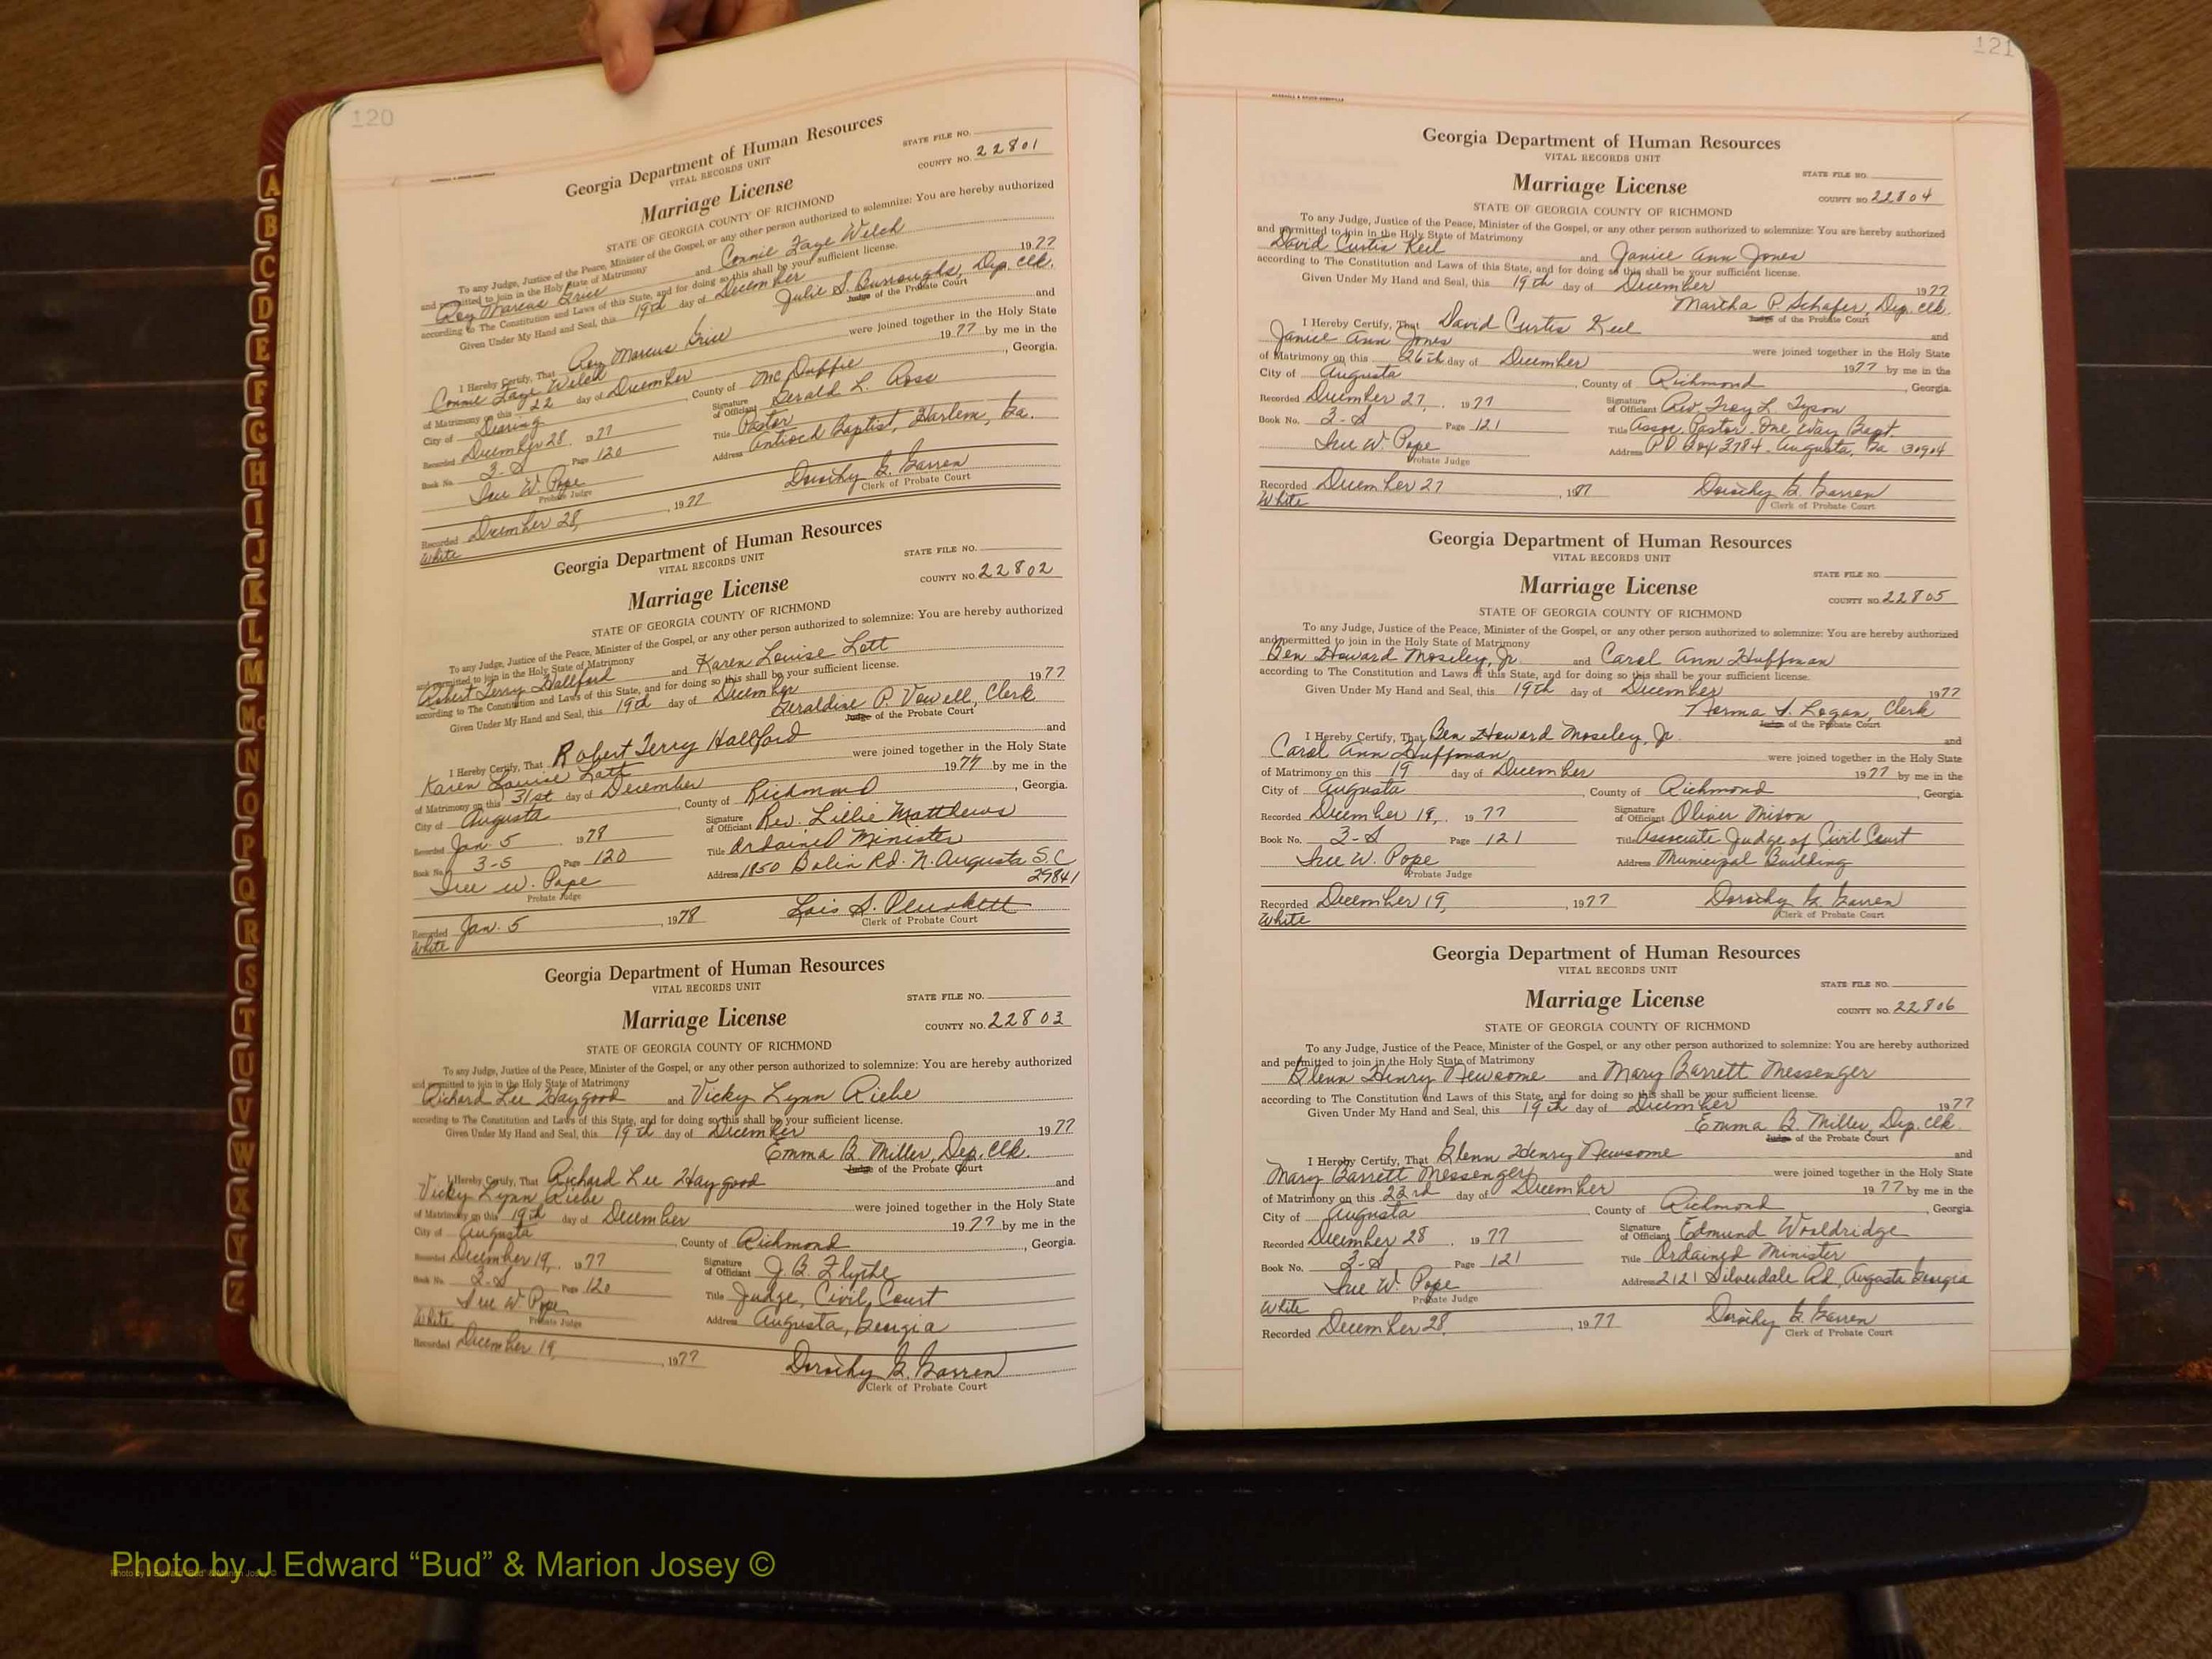 120
Georgia Department of Human Resources
VITAL RECORDS UNIT
STATE FILE NO.
Marriage License
COUNTY NO. 22801
STATE OF GEORGIA COUNTY OF RICHMOND
To any Judge, Justice of the Peace, Minister of the Gospel, or any other person authorized to solemnize: You are hereby authorized
and permitted to join in the Holy State of Matrimony
Roy Marcus Grice and Connie Faye Welch
according to The Constitution and Laws of this State, and for doing so this shall be your sufficient license.
Given Under My Hand and Seal, this 19th day of December 1977
Julie S. Burroughs, Dep. Clk.
Judge of the Probate Court
I Hereby Certify, That Roy Marcus Grice and
Connie Faye Welch were joined together in the Holy State
of Matrimony on this 22 day of December 1977 by me in the
City of Dearing, County of McDuffie, Georgia.
Recorded December 28, 1977 Signature of Officiant Gerald L. Ross
Book No. 3-S Page 120 Title Pastor
Sue W. Pope Address Antioch Baptist, Harlem, Ga.
Probate Judge
Recorded December 28, 1977 Dorothy G. Garren
White Clerk of Probate Court
Georgia Department of Human Resources
VITAL RECORDS UNIT
STATE FILE NO.
Marriage License
COUNTY NO. 22802
STATE OF GEORGIA COUNTY OF RICHMOND
To any Judge, Justice of the Peace, Minister of the Gospel, or any other person authorized to solemnize: You are hereby authorized
and permitted to join in the Holy State of Matrimony
Robert Terry Hallford and Karen Louise Lott
according to The Constitution and Laws of this State, and for doing so this shall be your sufficient license.
Given Under My Hand and Seal, this 19th day of December 1977
Geraldine P. Vowell, Clerk
Judge of the Probate Court
I Hereby Certify, That Robert Terry Hallford and
Karen Louise Lott were joined together in the Holy State
of Matrimony on this 31st day of December 1977 by me in the
City of Augusta, County of Richmond, Georgia.
Recorded Jan. 5 1978 Signature of Officiant Rev. Lillie Matthews
Book No. 3-S Page 120 Title Ordained Minister
Sue W. Pope Address 1850 Bolin Rd. N. Augusta S.C
Probate Judge 29841
Recorded Jan. 5, 1978 Lois S. Plunkett
White Clerk of Probate Court
Georgia Department of Human Resources
VITAL RECORDS UNIT
STATE FILE NO.
Marriage License
COUNTY NO. 22803
STATE OF GEORGIA COUNTY OF RICHMOND
To any Judge, Justice of the Peace, Minister of the Gospel, or any other person authorized to solemnize: You are hereby authorized
and permitted to join in the Holy State of Matrimony
Richard Lee Haygood and Vicky Lynn Riebe
according to The Constitution and Laws of this State, and for doing so this shall be your sufficient license.
Given Under My Hand and Seal, this 19th day of December 1977
Emma B. Miller, Dep. Clk.
Judge of the Probate Court
I Hereby Certify, That Richard Lee Haygood and
Vicky Lynn Riebe were joined together in the Holy State
of Matrimony on this 19th day of December 1977 by me in the
City of Augusta, County of Richmond, Georgia.
Recorded December 19, 1977 Signature of Officiant J. B. Flythe
Book No. 3-S Page 120 Title Judge, Civil Court
Sue W. Pope Address Augusta, Georgia
White Probate Judge
Recorded December 19, 1977 Dorothy G. Garren
Clerk of Probate Court
121
Georgia Department of Human Resources
VITAL RECORDS UNIT
STATE FILE NO.
Marriage License
COUNTY NO. 22804
STATE OF GEORGIA COUNTY OF RICHMOND
To any Judge, Justice of the Peace, Minister of the Gospel, or any other person authorized to solemnize: You are hereby authorized
and permitted to join in the Holy State of Matrimony
David Curtis Keel and Janice Ann Jones
according to The Constitution and Laws of this State, and for doing so this shall be your sufficient license.
Given Under My Hand and Seal, this 19th day of December 1977
Martha P. Schafer, Dep. Clk.
Judge of the Probate Court
I Hereby Certify, That David Curtis Keel and
Janice Ann Jones were joined together in the Holy State
of Matrimony on this 26th day of December 1977 by me in the
City of Augusta, County of Richmond, Georgia.
Recorded December 27, 1977 Signature of Officiant Rev. Troy L. Tyson
Book No. 3-S Page 121 Title Assoc. Pastor - One Way Bapt.
Sue W. Pope Address P.O. Box 3784 - Augusta, Ga 30904
Probate Judge
Recorded December 27, 1977 Dorothy G. Garren
White Clerk of Probate Court
Georgia Department of Human Resources
VITAL RECORDS UNIT
STATE FILE NO.
Marriage License
COUNTY NO. 22805
STATE OF GEORGIA COUNTY OF RICHMOND
To any Judge, Justice of the Peace, Minister of the Gospel, or any other person authorized to solemnize: You are hereby authorized
and permitted to join in the Holy State of Matrimony
Ben Howard Moseley, Jr. and Carol Ann Huffman
according to The Constitution and Laws of this State, and for doing so this shall be your sufficient license.
Given Under My Hand and Seal, this 19th day of December 1977
Norma S. Logan, Clerk
Judge of the Probate Court
I Hereby Certify, That Ben Howard Moseley, Jr. and
Carol Ann Huffman were joined together in the Holy State
of Matrimony on this 19 day of December 1977 by me in the
City of Augusta, County of Richmond, Georgia.
Recorded December 19, 1977 Signature of Officiant Oliver Mixon
Book No. 3-S Page 121 Title Associate Judge of Civil Court
Sue W. Pope Address Municipal Building
Probate Judge
Recorded December 19, 1977 Dorothy G. Garren
White Clerk of Probate Court
Georgia Department of Human Resources
VITAL RECORDS UNIT
STATE FILE NO.
Marriage License
COUNTY NO. 22806
STATE OF GEORGIA COUNTY OF RICHMOND
To any Judge, Justice of the Peace, Minister of the Gospel, or any other person authorized to solemnize: You are hereby authorized
and permitted to join in the Holy State of Matrimony
Glenn Henry Newsome and Mary Barrett Messenger
according to The Constitution and Laws of this State, and for doing so this shall be your sufficient license.
Given Under My Hand and Seal, this 19th day of December 1977
Emma B. Miller, Dep. Clk.
Judge of the Probate Court
I Hereby Certify, That Glenn Henry Newsome and
Mary Barrett Messenger were joined together in the Holy State
of Matrimony on this 23rd day of December 1977 by me in the
City of Augusta, County of Richmond, Georgia.
Recorded December 28, 1977 Signature of Officiant Edmund Wooldridge
Book No. 3-S Page 121 Title Ordained Minister
Sue W. Pope Address 2121 Silverdale Rd, Augusta Georgia
White Probate Judge
Recorded December 28, 1977 Dorothy G. Garren
Clerk of Probate Court
A
B
C
D
E
F
G
H
I
J
K
L
M
Mc
N
O
P
Q
R
S
T
U
V
W
X
Y
Z
Photo by J Edward “Bud” & Marion Josey ©
Photo by J Edward "Bud" & Marion Josey ©